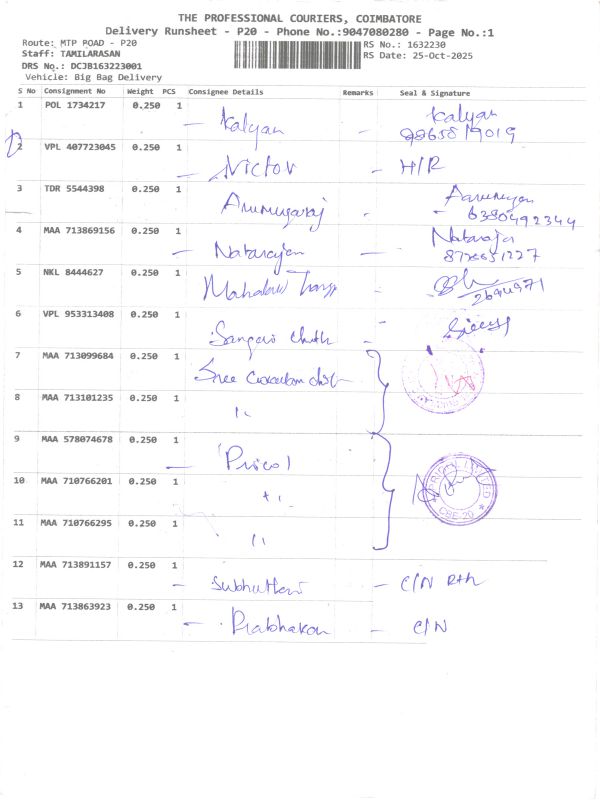 THE PROFESSIONAL COURIERS, COIMBATORE
Delivery Runsheet - P20 - Phone No.:9047080280 - Page No.:1
Route: MTP ROAD - P20
RS No.: 1632230
Staff: TAMILARASAN
RS Date: 25-Oct-2025
DRS No.: DCJB163223001
Vehicle: Big Bag Delivery
S No Consignment No Weight PCS Consignee Details Remarks Seal & Signature
1 POL 1734217 0.250 1
Kalyan - Kalyan
2 VPL 407723045 0.250 1
Victor - H/R
3 TDR 5544398 0.250 1
Arumugaraj - 6380492344
4 MAA 713869156 0.250 1
Natarajan - Nataraja
5 NKL 8444627 0.250 1
6 VPL 953313408 0.250 1
7 MAA 713099684 0.250 1
Sree
8 MAA 713101235 0.250 1
"
9 MAA 578074678 0.250 1
Pricol
10 MAA 710766201 0.250 1
"
PRICOL LIMITED
CBE-20
11 MAA 710766295 0.250 1
"
12 MAA 713891157 0.250 1
- C/N
13 MAA 713863923 0.250 1
Prabhakar - C/N